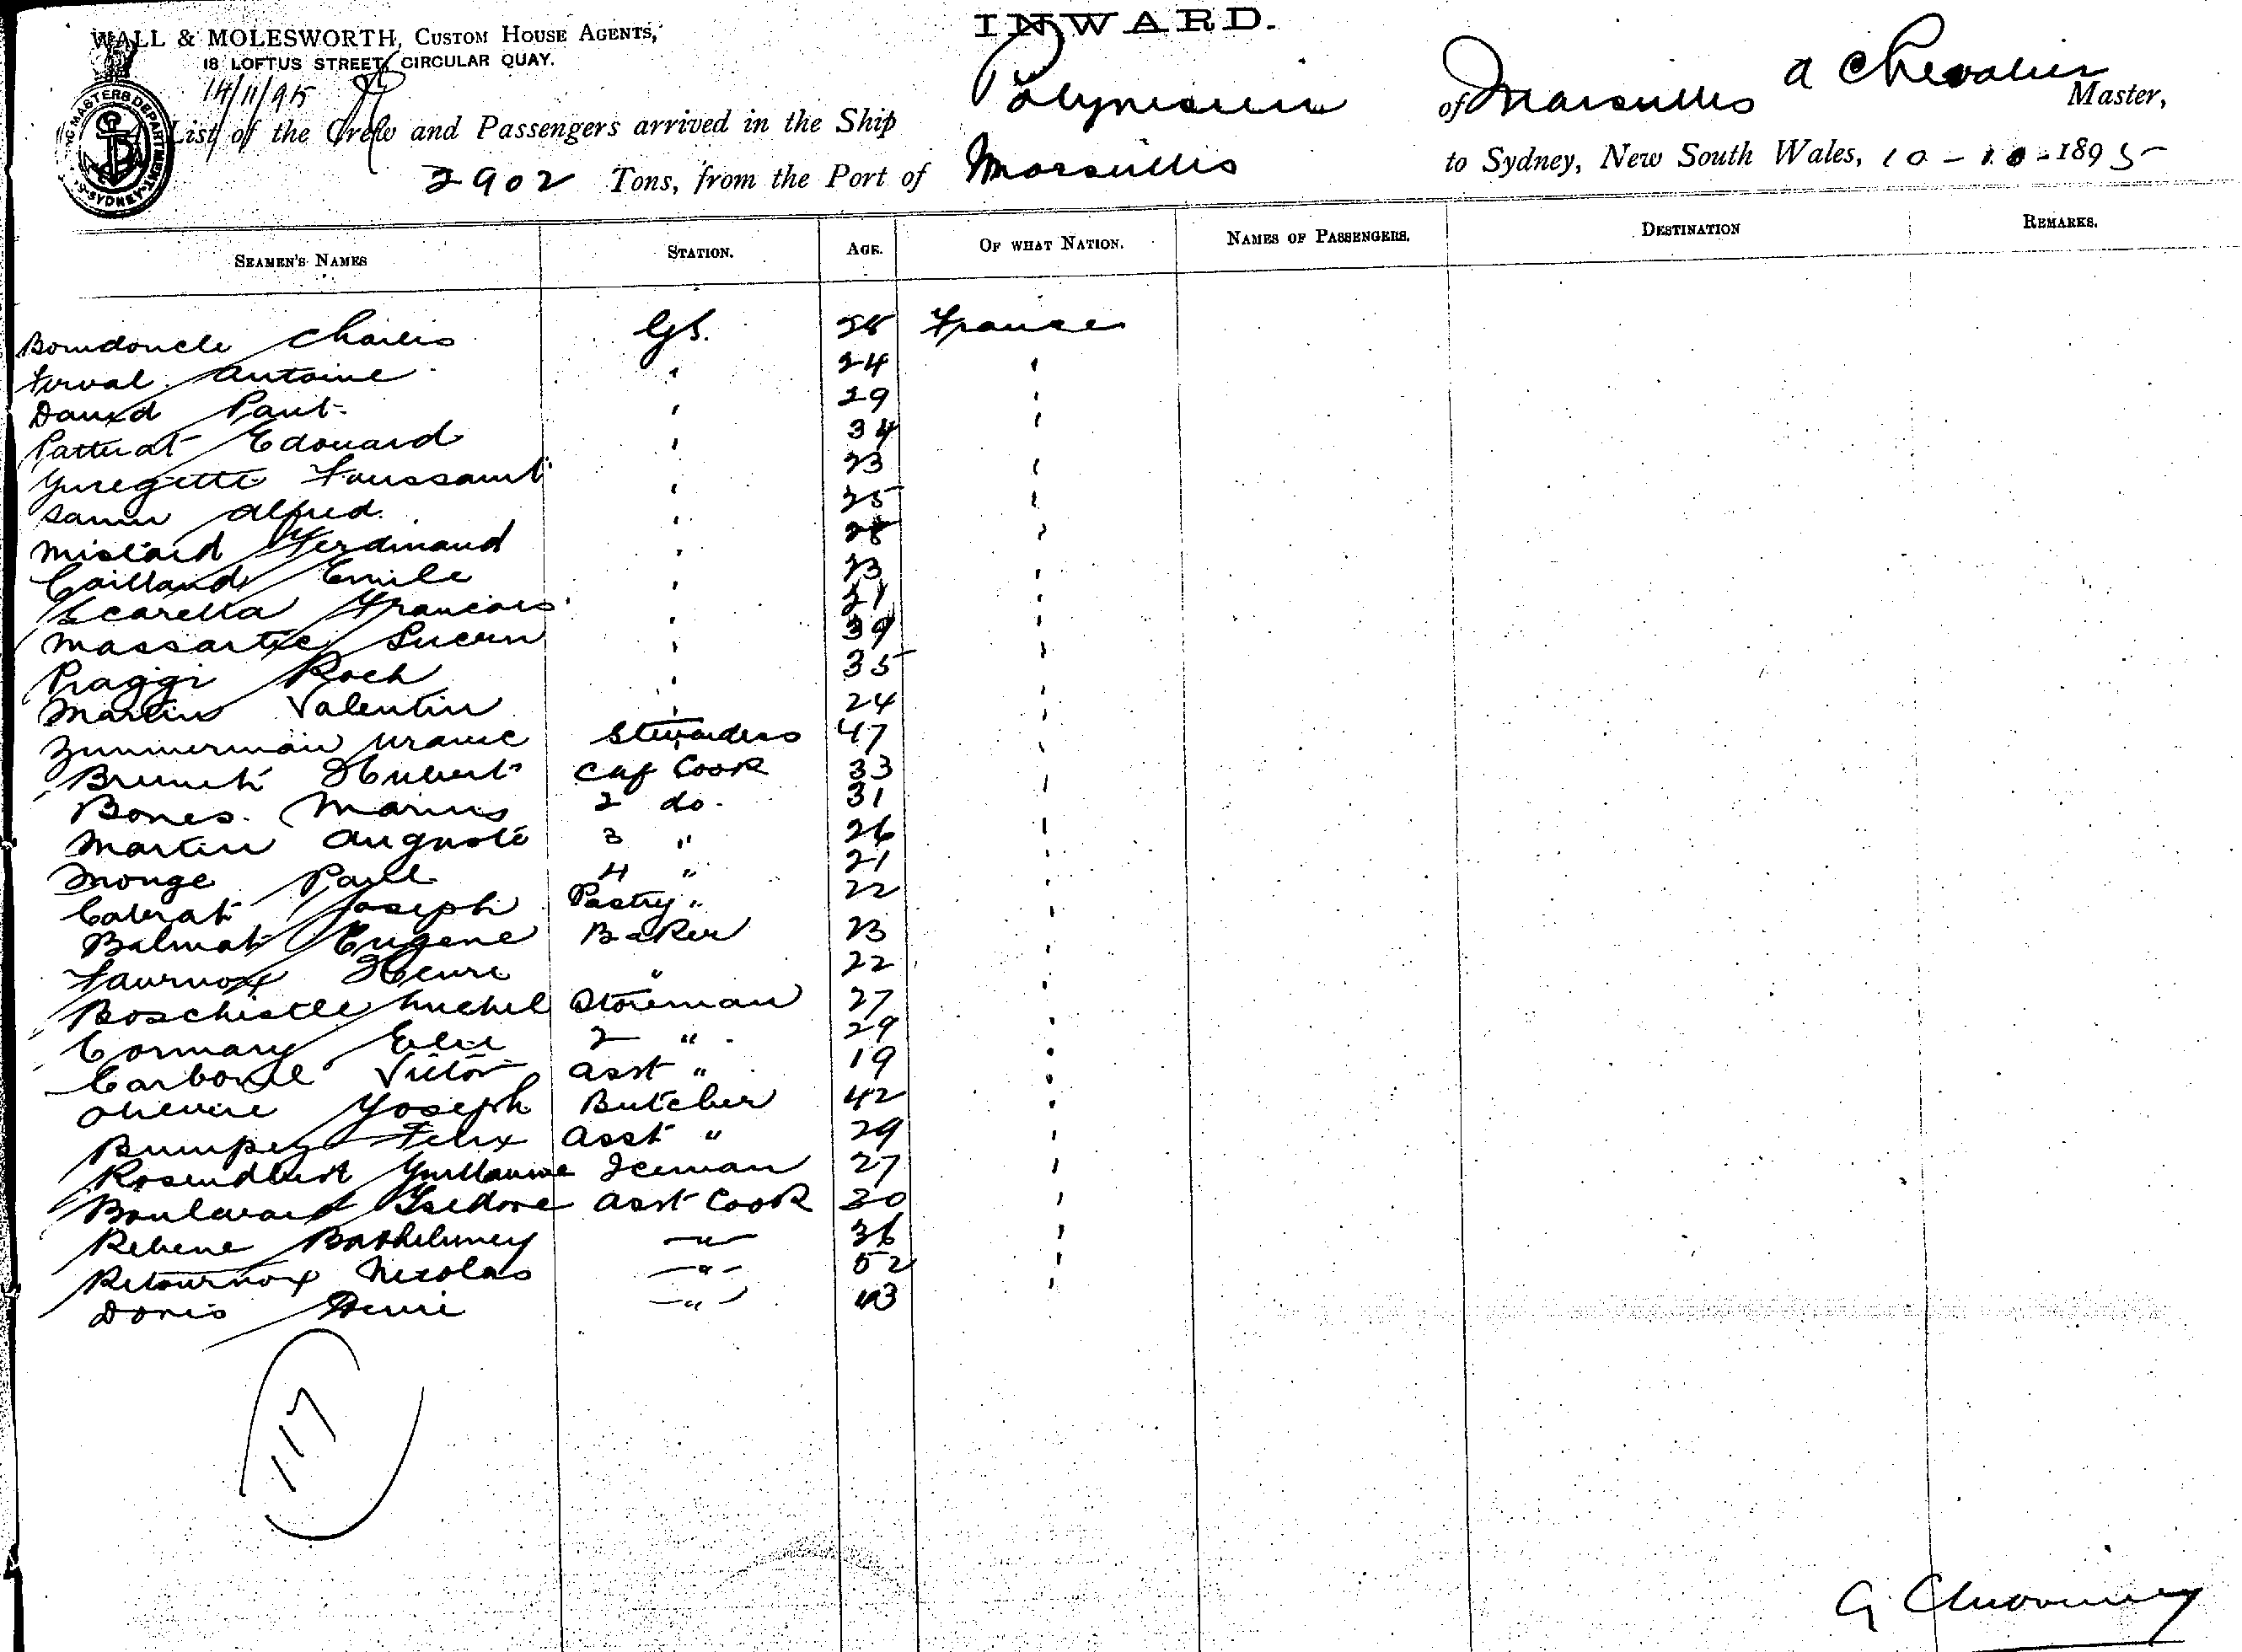 INWARD.
WALL & MOLESWORTH, CUSTOM HOUSE AGENTS,
18 LOFTUS STREET, CIRCULAR QUAY.
14/11/95
MASTERS DEPARTMENT SYDNEY
List of the Crew and Passengers arrived in the Ship Polynesien of Marseilles A Chevalier Master,
2902 Tons, from the Port of Marseilles to Sydney, New South Wales, 10-10-1895
SEAMEN'S NAMES STATION. AGE. OF WHAT NATION. NAMES OF PASSENGERS. DESTINATION REMARKS.
Bourdoncle Charles GS. France
Antoine " 24 "
David Paul " 29 "
Edouard " 34 "
Toussaint " 23 "
Alfred " 25 "
Mistard Ferdinand " 28 "
Caillaud Emile " 23 "
Scarella Francois " "
Massartic Lucien " 39 "
Piaggi Roch " 35 "
Martin Valentin " 24 "
Zimmerman Uranie Stewardess 47 "
Hubert Cook 33 "
Bones Marius 2 do. 31 "
Martin Auguste 3 " 26 "
Monge Paul 4 " 21 "
Joseph Pastry " 22 "
Balmat Eugene Baker 23 "
Henri " 22 "
Michel Storeman 27 "
Cormary Elie 2 " 29 "
Carbonel Victor Asst " 19 "
Joseph Butcher 42 "
Felix Asst " 29 "
Guillaume Iceman 27 "
Boulevard Isidore Asst Cook 30 "
Barthelemey " 36 "
Retournox Nicolas " 52 "
Doris Henri " 43
117